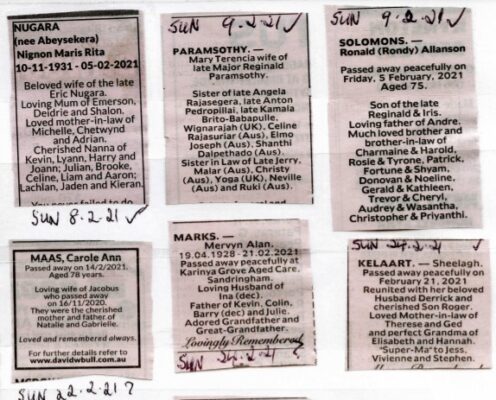 SUN 9.2.21 ✓
SUN 9.2.21 ✓
NUGARA
(nee Abeysekera)
Nignon Maris Rita
10-11-1931 - 05-02-2021
Beloved wife of the late
Eric Nugara.
Loving Mum of Emerson,
Deidrie and Shalon.
Loved mother-in-law of
Michelle, Chetwynd
and Adrian.
Cherished Nanna of
Kevin, Lyann, Harry and
Joann; Julian, Brooke,
Celine, Liam and Aaron;
Lachlan, Jaden and Kieran.
SUN 8.2.21 ✓
PARAMSOTHY. —
Mary Terencia wife of
late Major Reginald
Paramsothy.
Sister of late Angela
Rajasegera, late Anton
Pedropillai, late Kamala
Brito-Babapulle,
Wignarajah (UK), Celine
Rajasuriar (Aus), Elmo
Joseph (Aus), Shanthi
Dalpethado (Aus).
Sister in Law of Late Jerry,
Malar (Aus), Christy
(Aus), Yoga (UK), Neville
(Aus) and Ruki (Aus).
SOLOMONS. —
Ronald (Rondy) Allanson
Passed away peacefully on
Friday, 5 February, 2021
Aged 75.
Son of the late
Reginald & Iris.
Loving father of Andre.
Much loved brother and
brother-in-law of
Charmaine & Harold,
Rosie & Tyrone, Patrick,
Fortune & Shyam,
Donovan & Noeline,
Gerald & Kathleen,
Trevor & Cheryl,
Audrey & Wasantha,
Christopher & Priyanthi.
MAAS, Carole Ann
Passed away on 14/2/2021,
Aged 78 years.
Loving wife of Jacobus
who passed away
on 16/11/2020.
They were the cherished
mother and father of
Natalie and Gabrielle.
Loved and remembered always.
For further details refer to
www.davidwbull.com.au
SUN 22.2.21 ?
MARKS. —
Mervyn Alan.
19.04.1928 - 21.02.2021
Passed away peacefully at
Karinya Grove Aged Care,
Sandringham.
Loving Husband of
Ina (dec).
Father of Kevin, Colin,
Barry (dec) and Julie.
Adored Grandfather and
Great-Grandfather.
Lovingly Remembered
SUN 24.2.21 ?
SUN 24.2.21 ✓
KELAART. — Sheelagh.
Passed away peacefully on
February 21, 2021
Reunited with her beloved
Husband Derrick and
cherished Son Roger.
Loved Mother-in-law of
Therese and Ged
and perfect Grandma of
Elisabeth and Hannah.
"Super-Ma" to Jess,
Vivienne and Stephen.